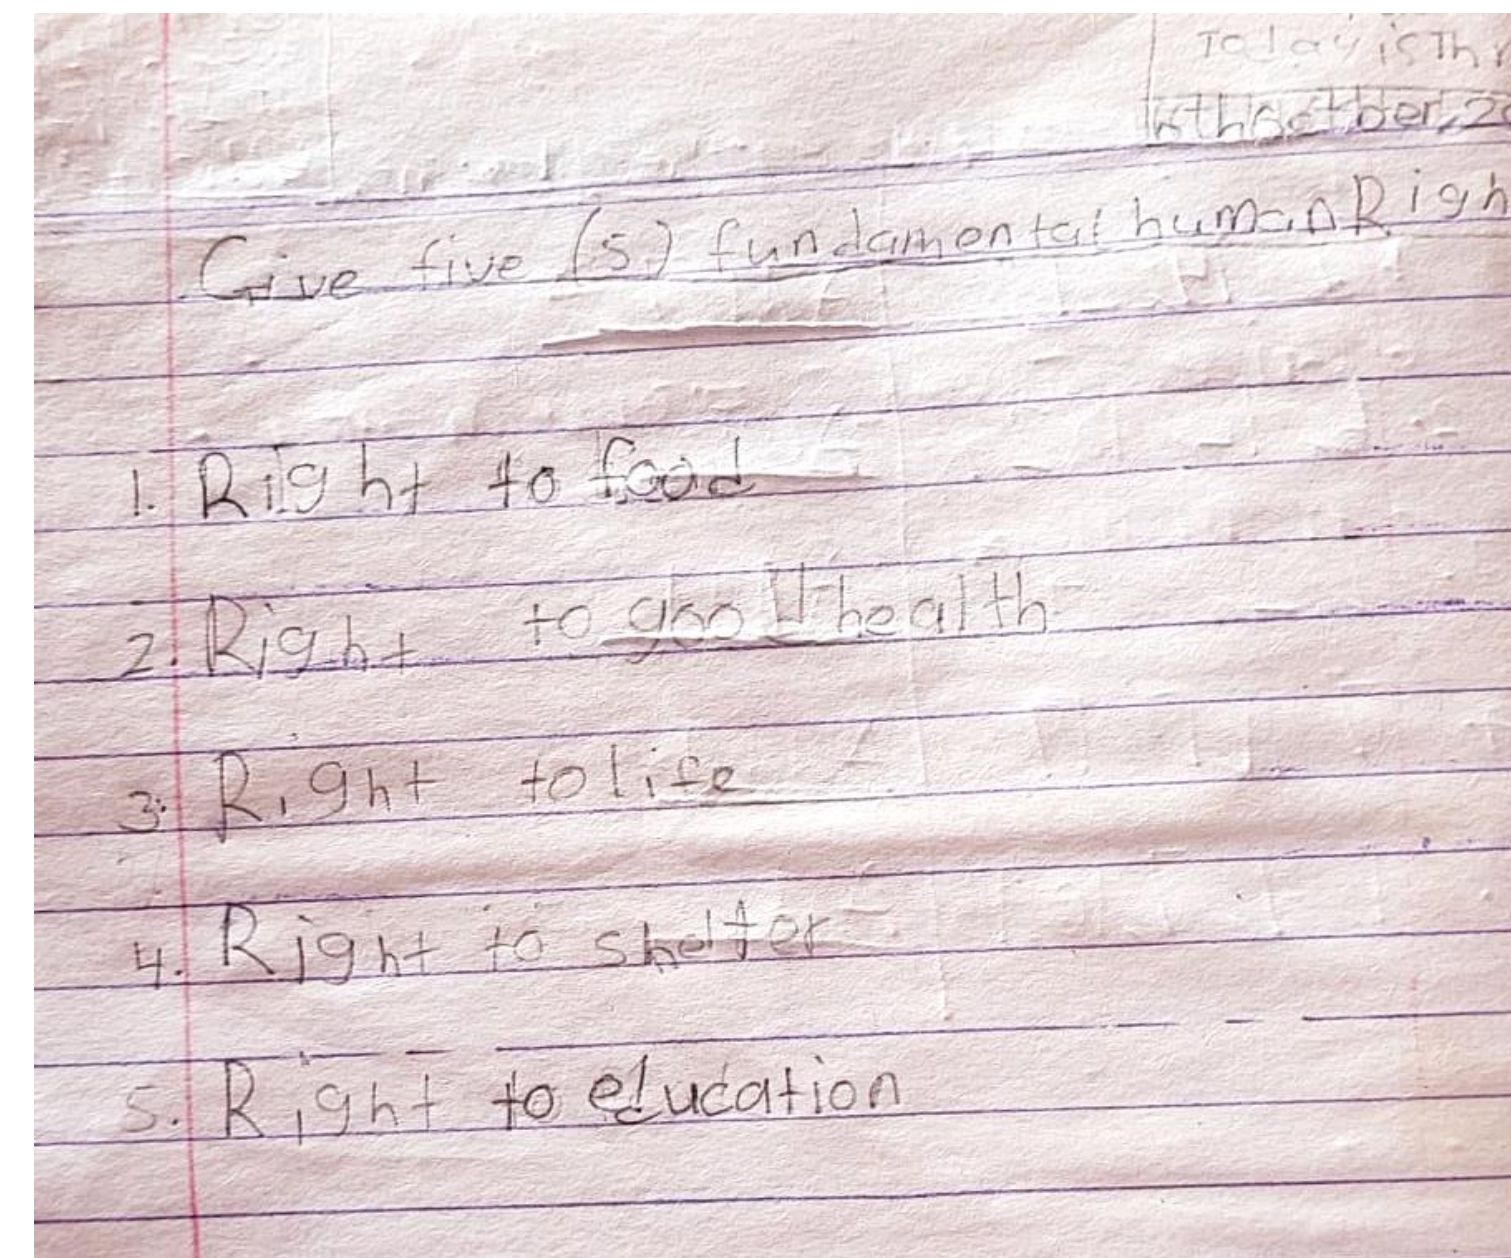 Today is Th
october, 20
Give five (5) fundamental human Righ
1. Right to food
2. Right to good health
3. Right to life
4. Right to shelter
5. Right to education